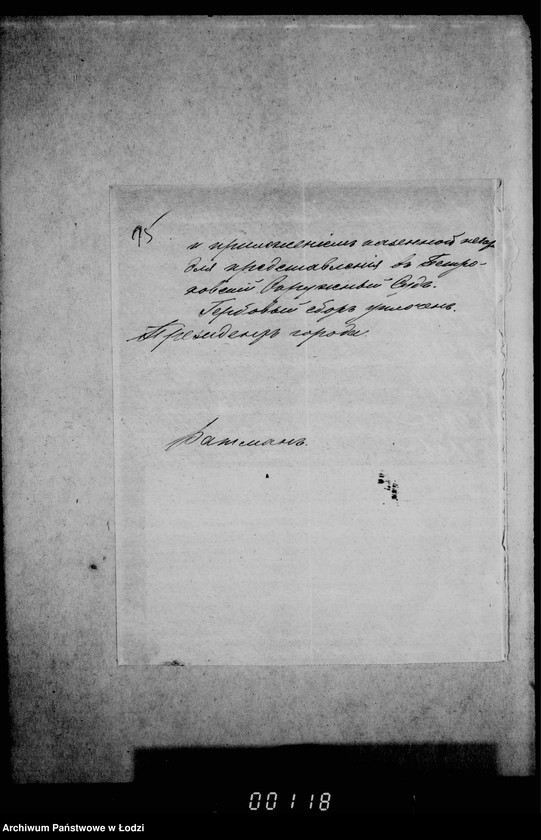 95
и приложеніемъ казенной печати
для представленія въ Петро-
ковскій Окружный Судъ.
Гербовый сборъ уплоченъ.
Президентъ города
Ратманъ.
00118
Archiwum Państwowe w Łodzi